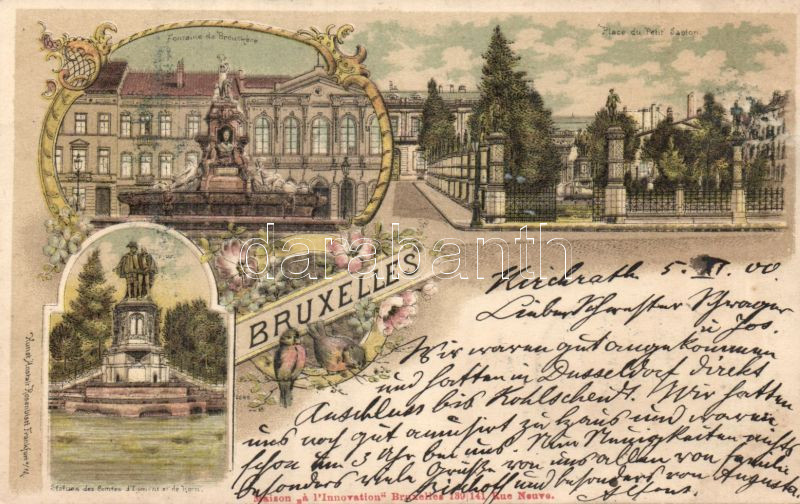 Fontaine de Brouckère
Place du Petit Sablon
BRUXELLES
Kirchrath 5. II. 00
Lieber Schwester Schwager
u Jos.
Wir waren gut angekommen
und hatten in Dusseldorf direkt
Anschluss bis Kohlscheidt. Wir hatten
uns noch gut amüsirt zu Haus und waren
schon um 3 Uhr bei uns. Neuigkeiten
besonders viele Grüsse von uns allen von Familie
und besonders von Augusta
Alfons.
Statues des Comtes d'Egmont et de Horn.
Maison „à l'Innovation" Bruxelles 139/141 Rue Neuve.
Rosenblatt Frankfurt a/M.
darabanth